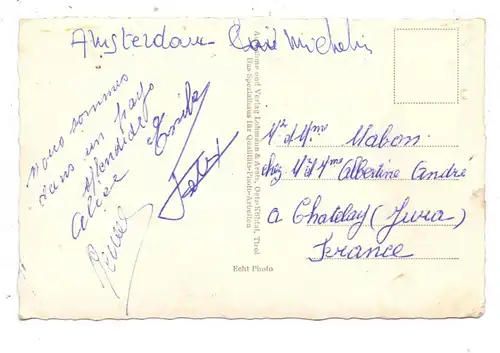 Amsterdam Café Michelin
Nous sommes
dans un pays
splendide
Alice Emile
Mr et Mme Mabon
chez M et Mme Albertine André
à Chatelay (Jura)
France
Aufnahme und Verlag Lohmann & Autz, Oetz-Kühtai, Tirol
Das Spezialhaus für Qualitäts-Photo-Arbeiten
Echt Photo